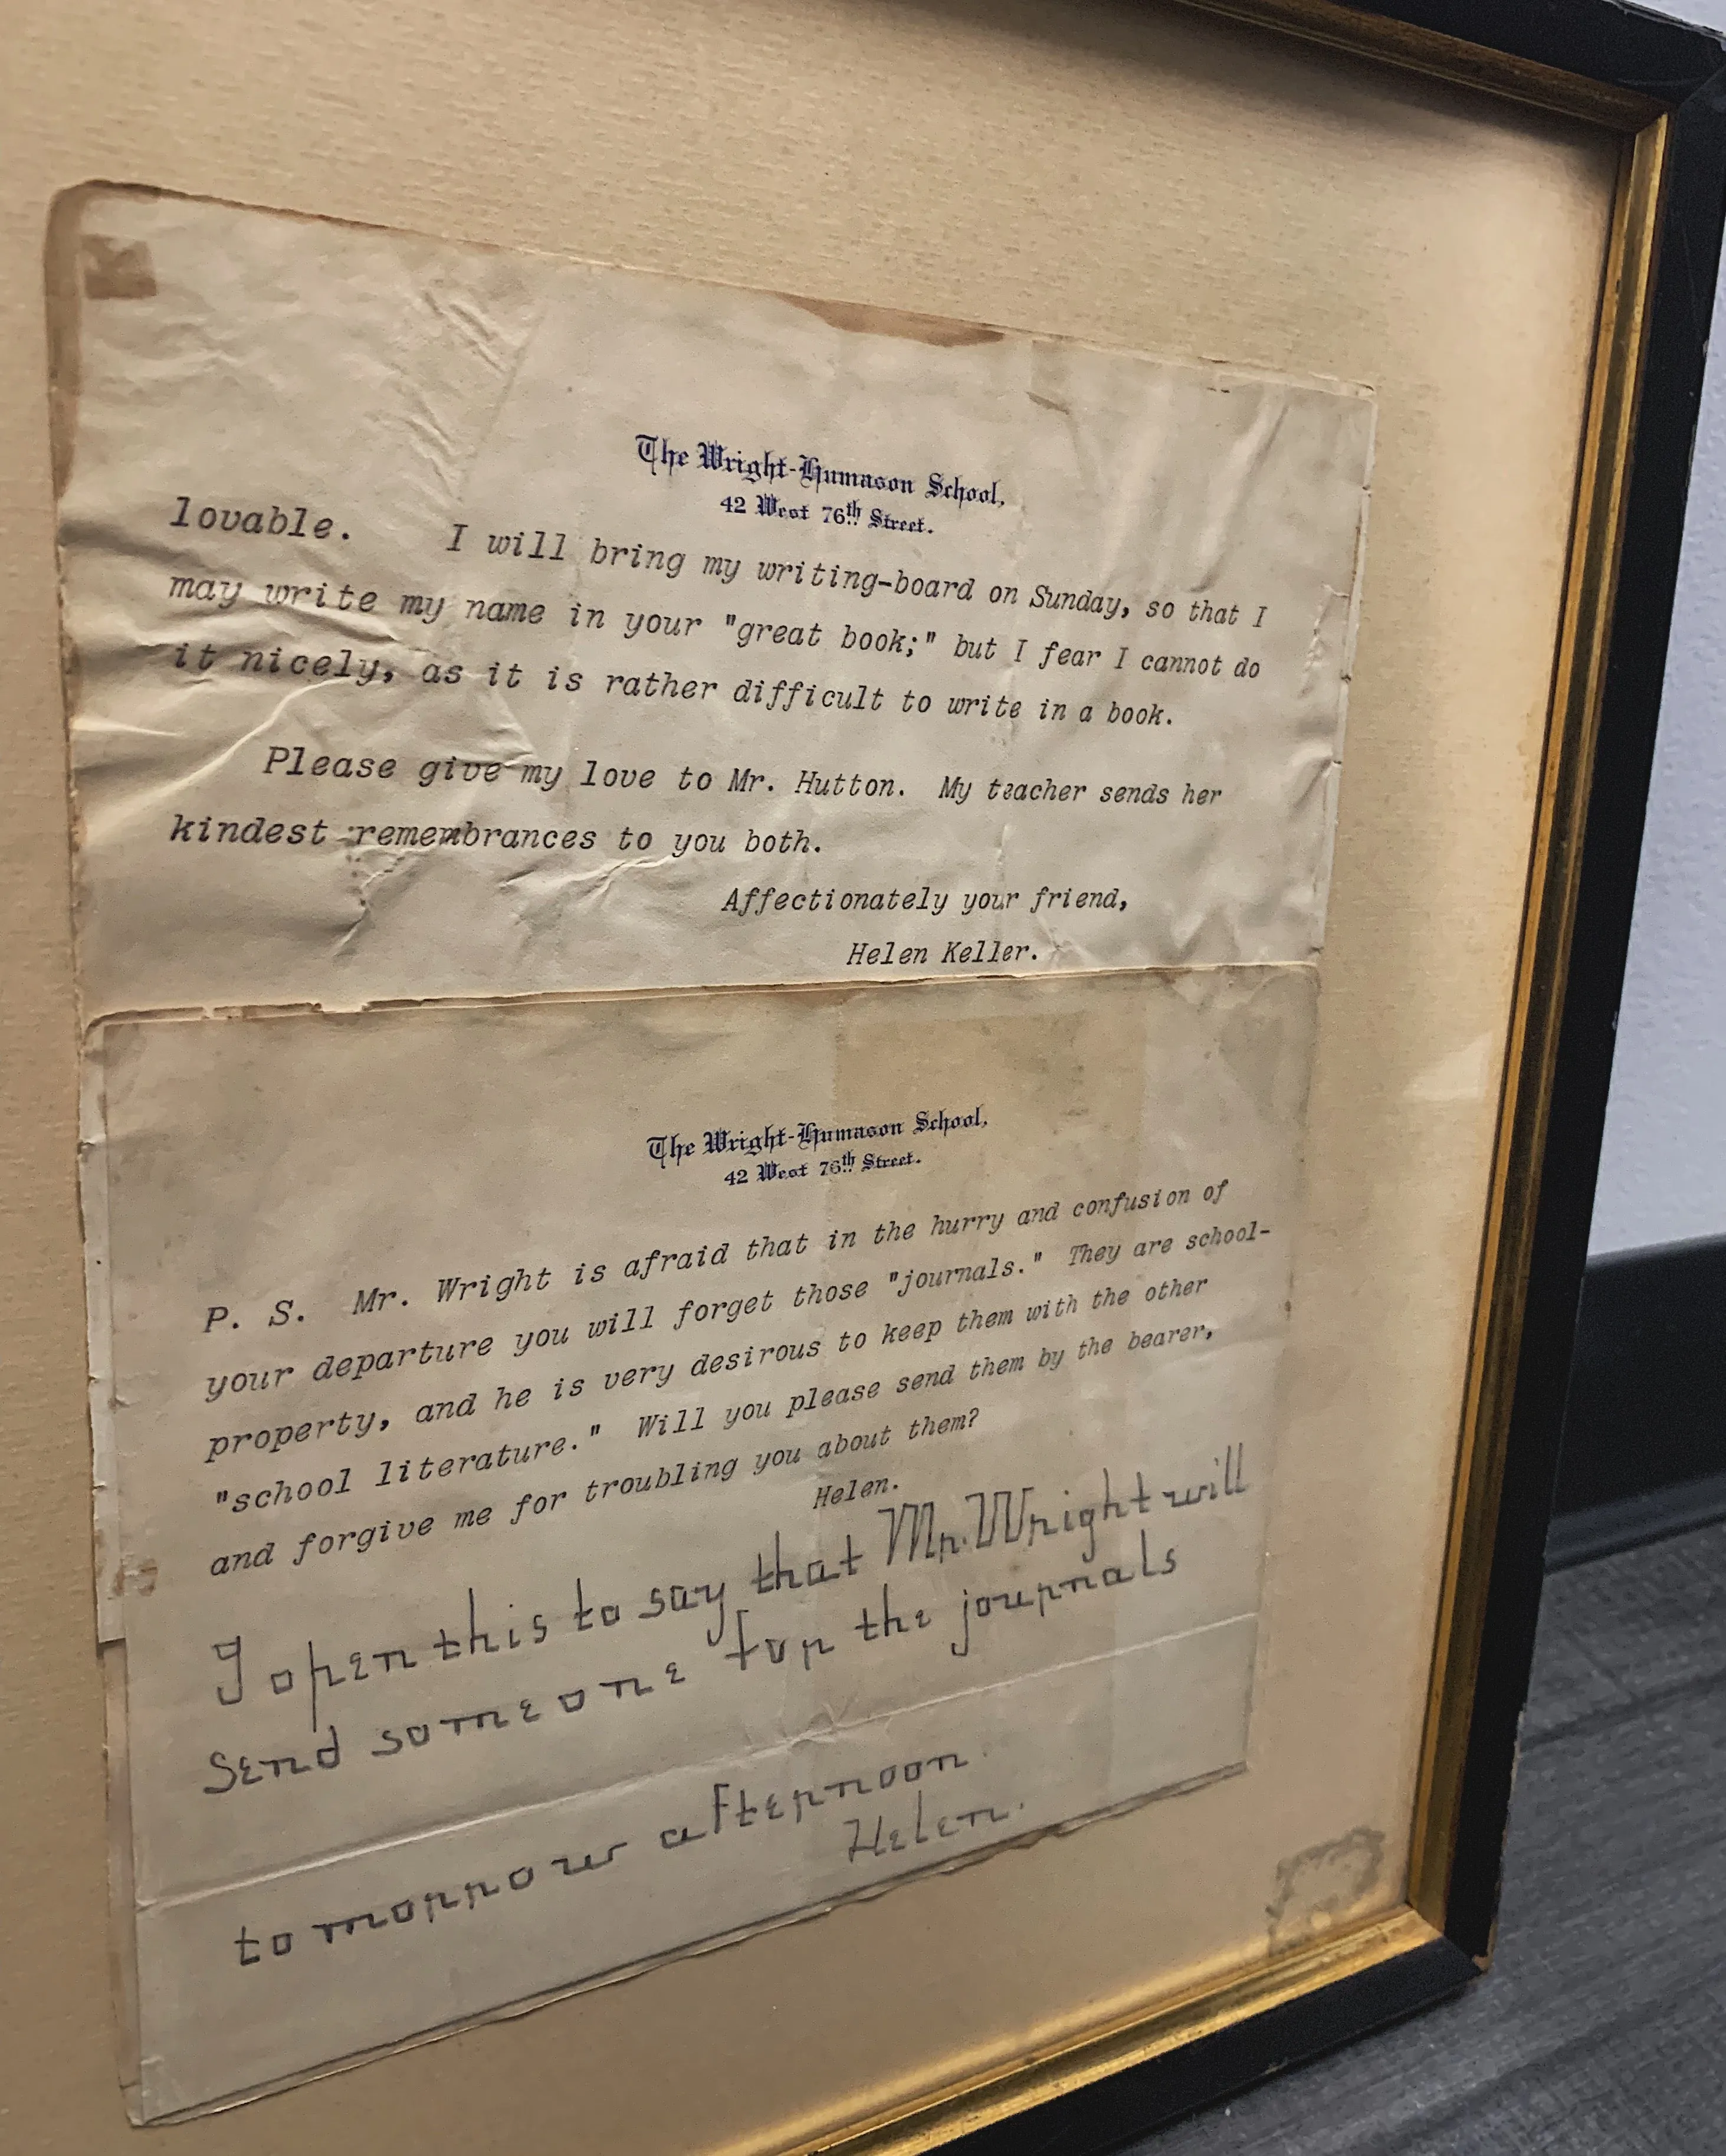 The Wright-Humason School,
42 West 76th Street.
lovable. I will bring my writing-board on Sunday, so that I
may write my name in your "great book;" but I fear I cannot do
it nicely, as it is rather difficult to write in a book.
Please give my love to Mr. Hutton. My teacher sends her
kindest remembrances to you both.
Affectionately your friend,
Helen Keller.
The Wright-Humason School,
42 West 76th Street.
P. S. Mr. Wright is afraid that in the hurry and confusion of
your departure you will forget those "journals." They are school-
property, and he is very desirous to keep them with the other
"school literature." Will you please send them by the bearer,
and forgive me for troubling you about them?
Helen.
I open this to say that Mr. Wright will
send someone for the journals
tomorrow afternoon.
Helen.